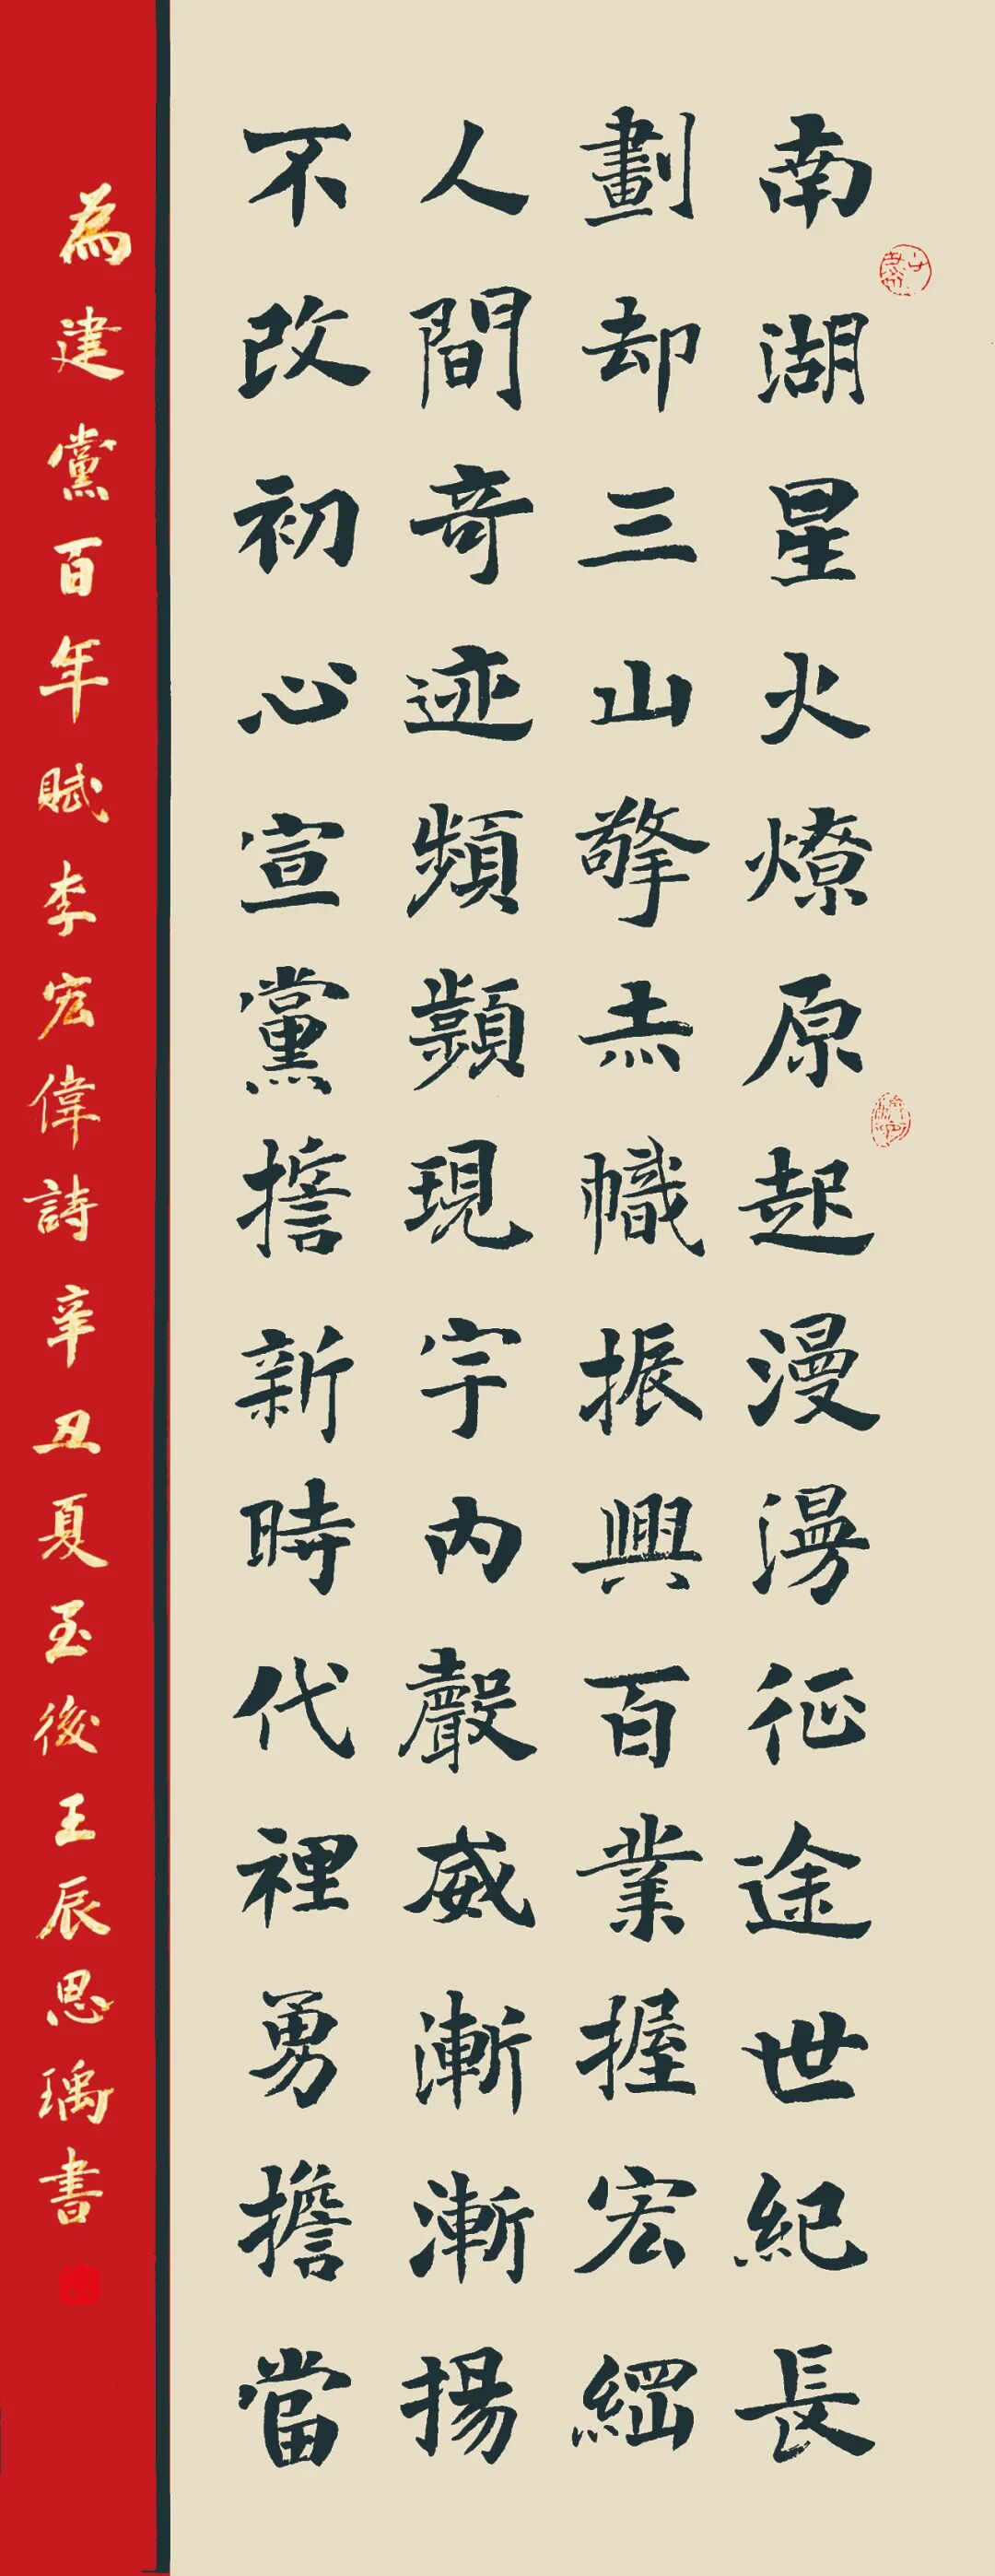 南湖星火燎原起漫漫征途世紀長
劃却三山擎赤幟振興百業握宏綱
人間奇迹頻頻現宇內聲威漸漸揚
不改初心宣黨擔新時代裡勇擔當
為建黨百年賦李宏偉詩辛丑夏至後王辰思瑀書